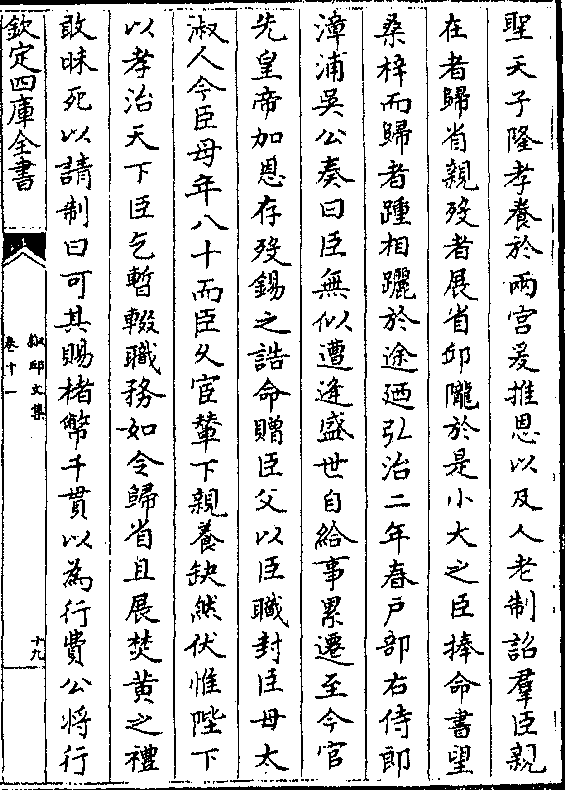 聖天子隆孝養於兩宮爰推恩以及人老制詔羣臣親
在者歸省親殁者展省邱隴於是小大之臣捧命書望
桑梓而歸者踵相躡於途廼弘治二年春戸部右侍郎
漳浦吳公奏曰臣無似遭逢盛世自給事累遷至今官
先皇帝加恩存殁錫之誥命贈臣父以臣職封臣母太
淑人今臣母年八十而臣久宦輦下親養缺然伏惟陛下
以孝治天下臣乞暫輟職務如令歸省且展焚黄之禮
敢昧死以請制曰可其賜楮幣千貫以為行費公將行
欽定四庫全書
文集
卷十一
十九